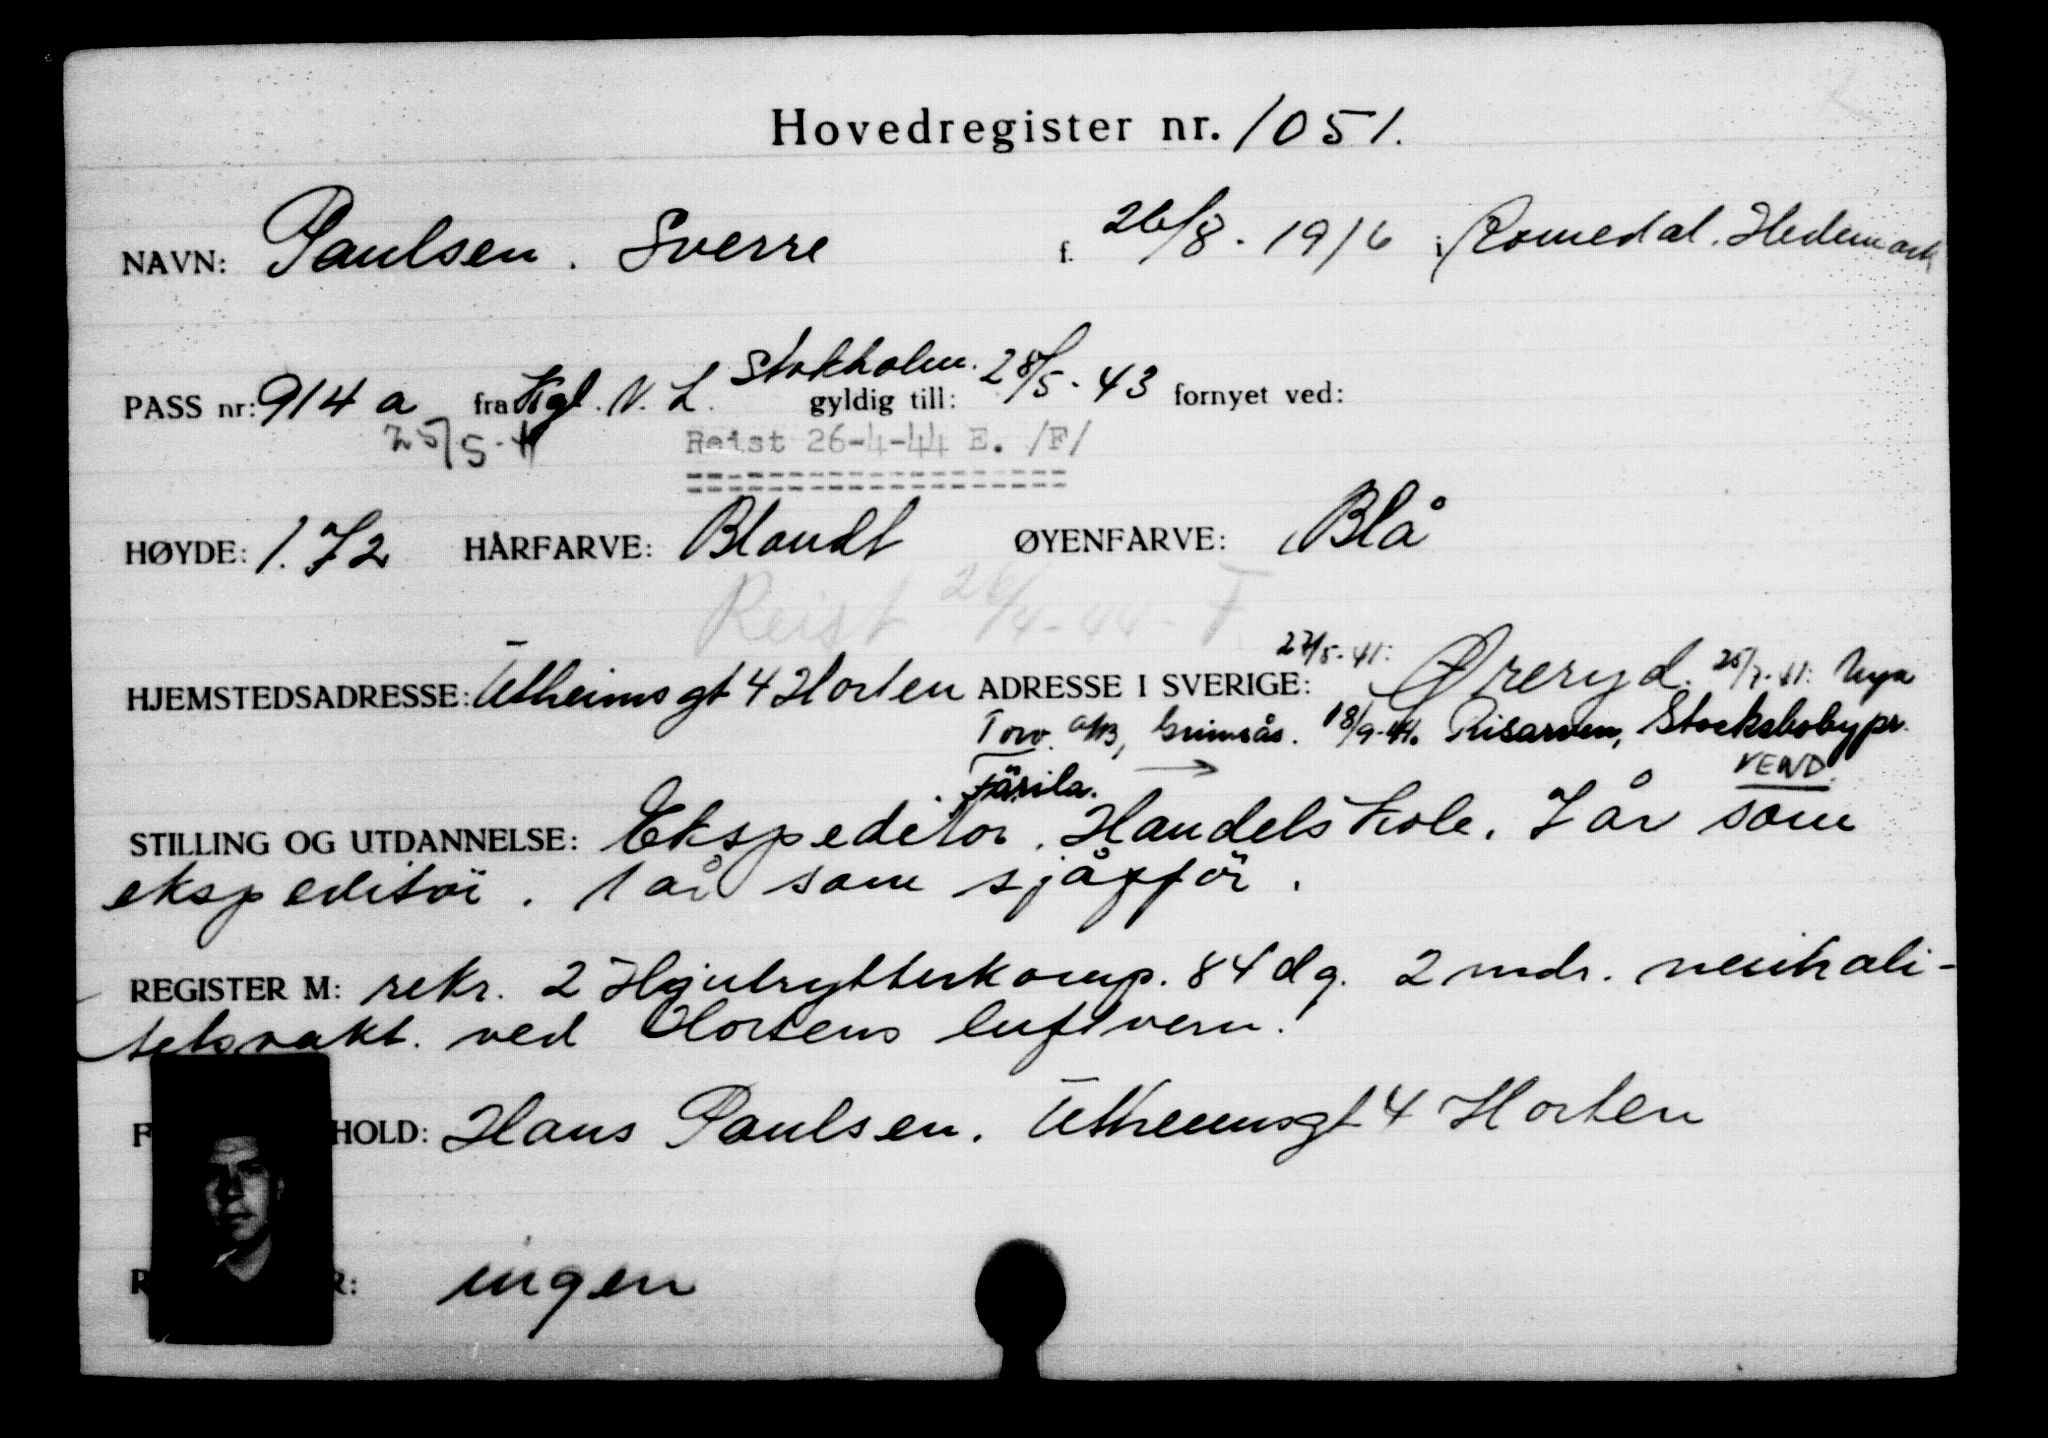 Hovedregister nr. 1051.
NAVN: Paulsen. Sverre f. 26/8. 1916 i Romedal. Hedemark
PASS nr: 914 a fra Kgl. N. L. Stokholm. gyldig till: 28/5-43 fornyet ved:
25/5-41 Reist 26-4-44 E. /F/
HØYDE: 1.72 HÅRFARVE: Blondt ØYENFARVE: Blå
Reist 26/4-44-F.
HJEMSTEDSADRESSE: gt 4 Horten ADRESSE I SVERIGE: 27/5-41: Øreryd. 25/7-41: Nya
Torv A/B, Grimsås. 18/9-41. Risarven, Stocksbobypr.
Färila. → VEND.
STILLING OG UTDANNELSE: Ekspeditør. Handelskole. 7 år som
ekspeditør. 1 år som sjåffør.
REGISTER M: rekr. 2 Hjulrytterkomp. 84 dg. 2 mdr. neutrali-
tetsvakt. ved Hortens luftvern.
F HOLD: Hans Paulsen. gt 4 Horten
R R: ingen